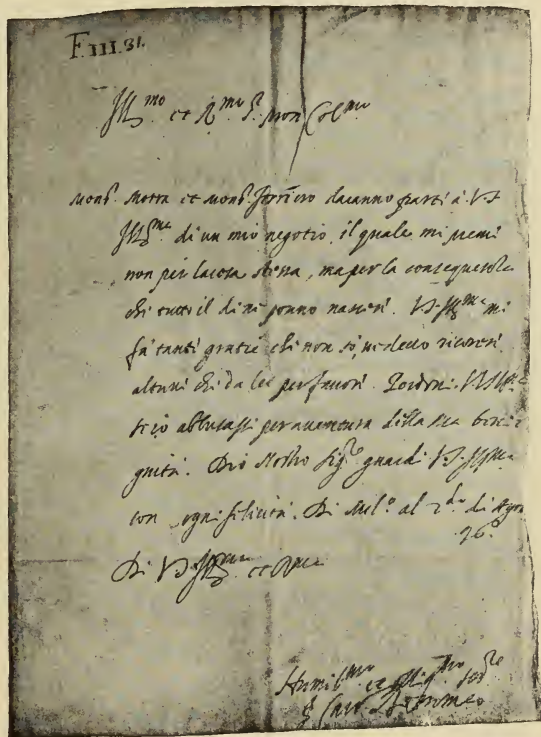 F.III.31.
Ill.mo et R.mo S.r Mon. Col.mo
Mons.r Motta et Mons.r daranno parti à V.S.
Ill.ma di un mio negotio, il quale mi premi
non per la cosa stessa, ma per la consequentia
chi tutto il dì ni ponno nasciri. V.S. Ill.ma mi
fà tanti gratie chi non sò, ne deco ricorrer
altrui chi da lei per favori. V.S. Ill.ma
s'io abbusassi per aventura della sua beni
gnità. Dio Nostro Sig.re guardi V.S. Ill.ma
con ogni felicità. Di Mil.o al 2.do di
26.
Di V.S. Ill.ma et R.ma
Humil.mo et Ser.re
Borromeo